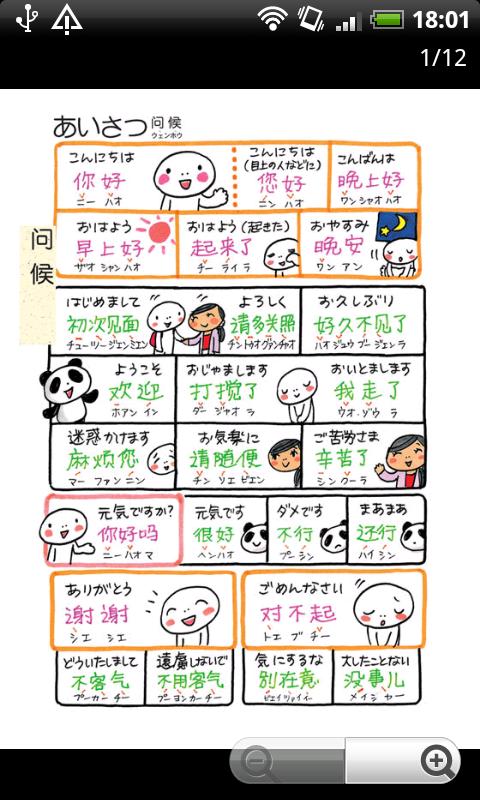 18:01
1/12
あいさつ 問候
ウェンホウ
問候
こんにちは
你好
ニー ハオ
こんにちは
(目上の人などに)
您好
ニン ハオ
こんばんは
晚上好
ワンシャオ ハオ
おはよう
早上好
ザオ シャン ハオ
おはよう(起きた)
起来了
チー ライ ラ
おやすみ
晚安
ワン アン
はじめまして
初次见面
チューツージェンミエン
よろしく
请多关照
チンドゥオグアンヂャオ
お久しぶり
好久不见了
ハオ ジュウ ブー ジェン ラ
ようこそ
欢迎
ホアン イン
おじゃまします
打搅了
ダー ジャオ ラ
おいとまします
我走了
ウオ ゾウ ラ
迷惑かけます
麻烦您
マー ファン ニン
お気楽に
请随便
チン ソエ ビエン
ご苦労さま
辛苦了
シン クー ラ
元気ですか?
你好吗
ニー ハオ マ
元気です
很好
ヘン ハオ
ダメです
不行
ブー シン
まあまあ
还行
ハイ シン
ありがとう
谢谢
シエ シエ
ごめんなさい
对不起
トエ ブ チー
どういたしまして
不客气
ブー カー チー
遠慮しないで
不用客气
ブー ヨン カー チー
気にするな
别在意
大したことない
没事儿
メイ シャー